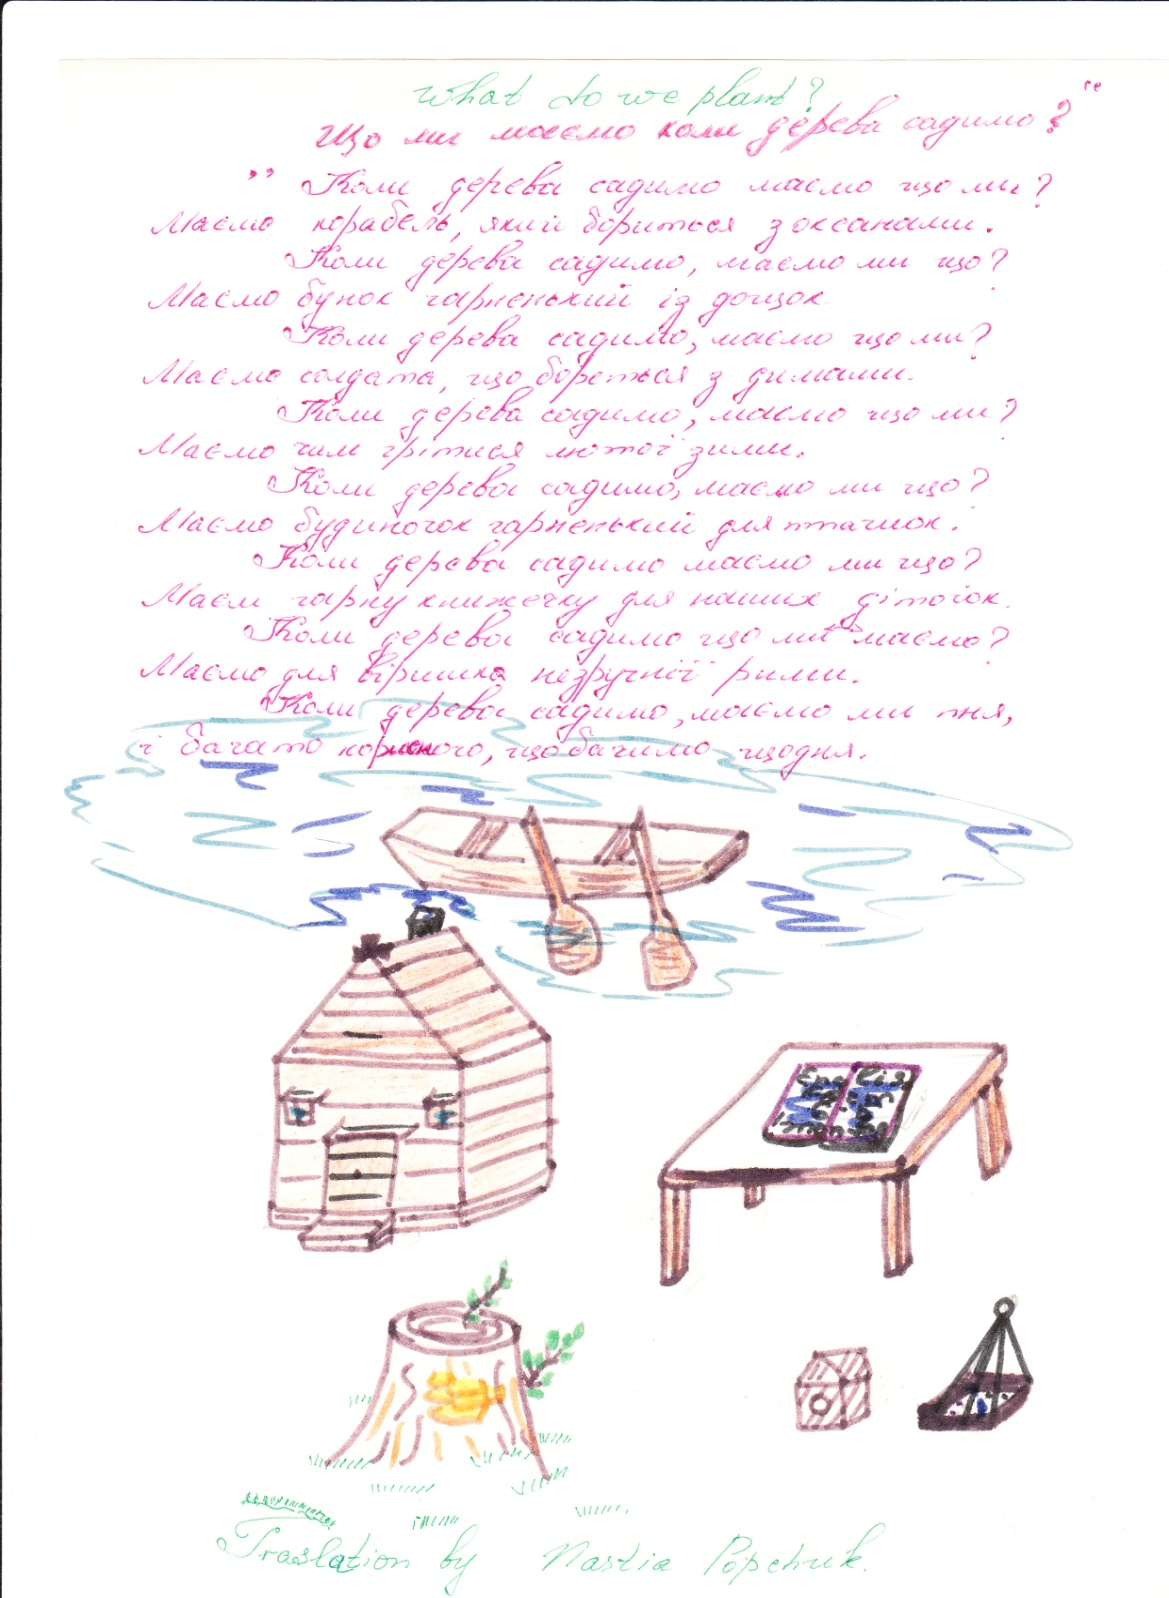 What do we plant?
Що ми маємо коли дерева садимо?"
,, Коли дерева садимо маємо що ми?
Маємо корабель, який бориться з океанами.
Коли дерева садимо, маємо ми що?
Маємо бунок гарненький із дощок
Коли дерева садимо, маємо що ми?
Маємо солдата, що бореться з димами.
Коли дерева садимо, маємо що ми?
Маємо чим грітися лютої зими.
Коли дерева садимо, маємо ми що?
Маємо будиночок гарненький для пташок.
Коли дерева садимо маємо ми що?
Маєм гарну книжечку для наших діточок.
Коли дерева садимо що ми маємо?
Маємо для віршика незручнії рими.
Коли дерева садимо, маємо ми пня,
і багато корисного, що бачимо щодня.
Traslation by Nastia Popchuk.